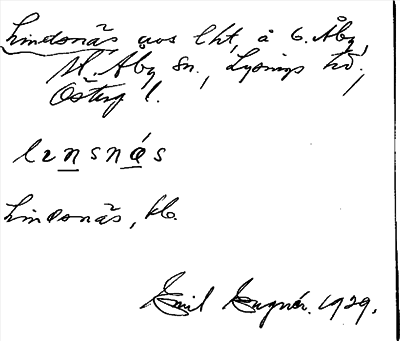 Lindonäs, gos lht, å G. Åby,
Ö. Åby sn., Lysings hd,
Österg l.
lınsnás
Lindonäs, kb.
Emil Lugnér. 1929.